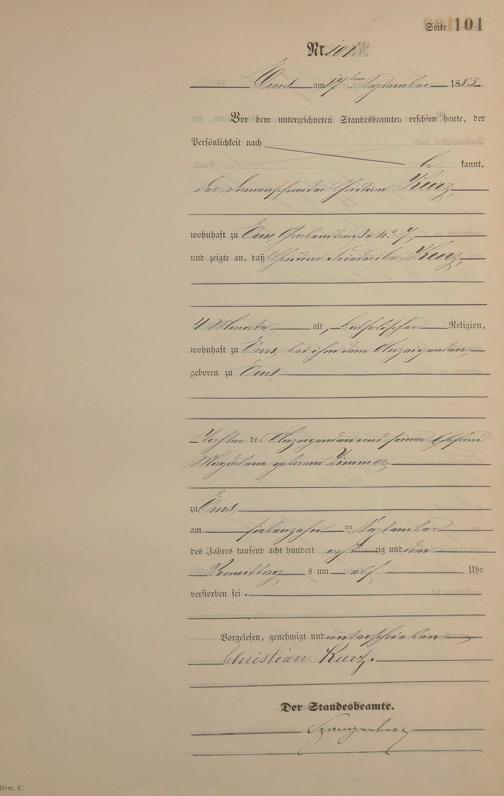 Seite 101
Nr. 101.
Ems am 17ten September 1883.
Vor dem unterzeichneten Standesbeamten erschien heute, der
Persönlichkeit nach
be kannt,
der Damenschneider Christian Kurz,
wohnhaft zu Ems, No 7,
und zeigte an, daß Christina Friederike Kurz,
4 Monate alt, katholischer Religion,
wohnhaft zu Ems, bei ihm dem Anzeigenden,
geboren zu Ems
Tochter des Anzeigenden und seiner Ehefrau
Magdalena geborene Zimmer,
zu Ems
am siebenzehnten September
des Jahres tausend acht hundert achtzig und drei
Vormittags um elf Uhr
verstorben sei.
Vorgelesen, genehmigt und unterschrieben
Christian Kurz.
Der Standesbeamte.
Form. C.